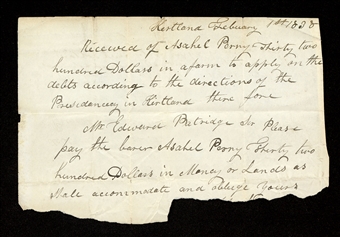 Kirtland Febuary 1st 1838
Received of Asahel Perry Thirty two
hundred Dollars in a farm to apply on the
debts according to the directions of the
Presidancy in Kirtland there fore
Mr Edward Patridge Sr Please
pay the barer Asahel Perry Thirty two
Hundred Dollars in Money or Lands as
Shall accommodate and oblige yours